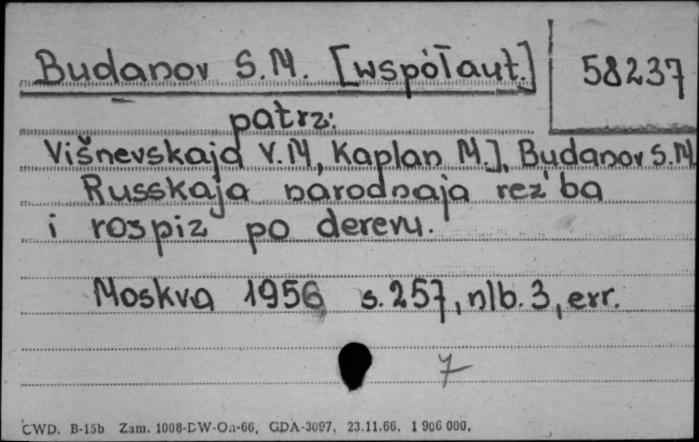 Budanov S.M. [współaut.] 58237
patrz:
Višnevskaja V.M, Kaplan M.], Budanov S.M.
Russkaja narodnaja rez'ba
i rospiz po derevu.
Moskva 1956 s. 257, nlb. 3, err.
7
CWD. B-15b Zam. 1008-DW-Oa-66, GDA-3097. 23.11.66. 1 906 000.